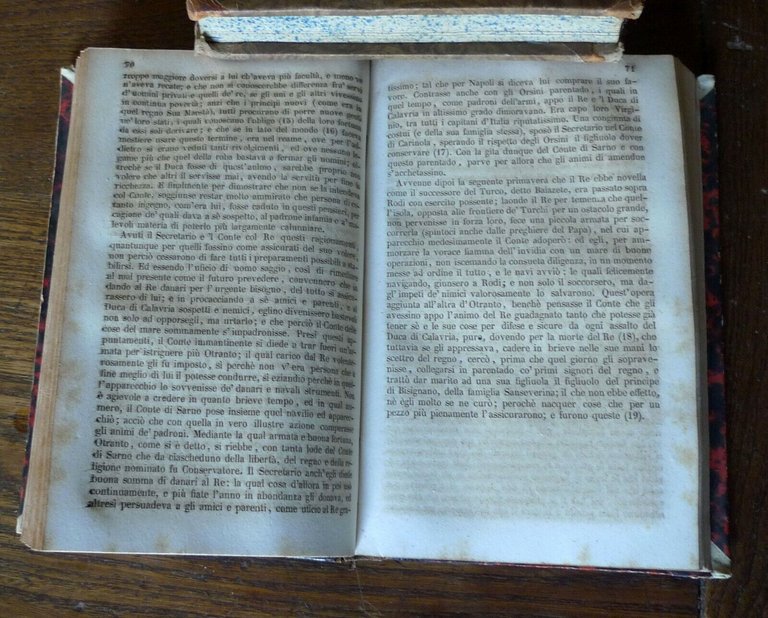 70
troppo maggiore doversi a lui ch'aveva più facultà, e tuono ve
n'aveva recate; e che non si conoscerebbe differenza fra' servi
d'uomini privati e quelli de' re, se gli uni e gli altri vivessero
in continua povertà; anzi che i principi nuovi (come era in
quel regno Sua Maestà), tutti procurano di porre nuove genti
ne' loro stati, i quali conoscano l'obligo (15) della loro fortuna
da essi soli derivare; e che se in lato del mondo (16) faceva
mestiere usare questo termine, era nel reame, ove per l'ad-
dietro si erano veduti tanti rivolgimenti, ed ove nessuno le-
game più che quel della roba bastava a fermar gli uomini; che
dove se il Duca fosse di quest'animo, sarebbe proprio non
volere che altri il servisse mai, avendo la servitù per fine la
ricchezza. E finalmente per dimostrare che non se la intendeva
col Conte, soggiunse restar molto ammirato che persona di
tanto ingegno, com'era lui, fosse caduto in questi pensieri, per
cagione de' quali dava a sè sospetto, al padrone infamia e a' ma-
levoli materia di poterlo più largamente calunniare.
Avuti il Secretario e 'l Conte col Re questi ragionamenti,
quantunque per quelli fussino come assicurati del suo volere,
non perciò cessarono di fare tutti i preparamenti possibili a sta-
bilirsi. Ed essendo l'uficio di uomo saggio, così di rimediare
al mal presente come il futuro prevedere, convennero che in
dando al Re danari per l'urgente bisogno, del tutto si assicu-
rassero di lui; e in procacciando a sè amici e parenti, e al
Duca di Calavria sospetti e nemici, eglino divenissero bastanti
non solo ad opporsegli, ma urtarlo; e che perciò il Conte delle
cose del mare sommamente s'impadronisse. Presi questi ap-
puntamenti, il Conte immantinente si diede a trar fuori un'ar-
mata per istrignere più Otranto; il qual carico dal Re volonte-
rosamente gli fu imposto, sì perchè non v'era persona che a
fine meglio di lui il potesse condurre, sì eziandio perchè in quel-
l'apparecchio lo sovvenisse de' danari e navali strumenti. Non è
agievole a credere in quanto brieve tempo, ed in qual nu-
mero, il Conte di Sarno pose insieme quel navilio ed apparec-
chiò; acciò che con quella in vero illustre azione comperasse
gli animi de' padroni. Mediante la qual armata e buona fortuna,
Otranto, come si è detto, si riebbe, con tanta lode del Conte
di Sarno che da ciascheduno della libertà, del regno e della re-
ligione nominato fu Conservatore. Il Secretario anch'egli diede
buona somma di danari al Re: la qual cosa d'allora in poi usò
continuamente, e più fiate l'anno in abondanza gli donava, ed
altresì persuadeva a gli amici e parenti, come uficio al Re gra-
71
tissimo; tal che per Napoli si diceva lui comprare il suo fa-
vore. Contrasse anche con gli Orsini parentado, i quali in
quel tempo, come padroni dell'armi, appo il Re e 'l Duca di
Calavria in altissimo grado dimoravano. Era capo loro Virgi-
nio, tra tutti i capitani d'Italia riputatissimo. Una congiunta di
costui (e della sua famiglia stessa), sposò il Secretario nel Conte
di Carinola, sperando il rispetto degli Orsini il figliuolo dover
conservare (17). Con la gita dunque del Conte di Sarno e con
questo parentado, parve per allora che gli animi di amendue
s'acchetassino.
Avvenne dipoi la seguente primavera che il Re ebbe novella
come il successore del Turco, detto Baiazete, era passato sopra
Rodi con esercito possente; laonde il Re per temenza che quel-
l'isola, opposta alle frontiere de' Turchi per un ostacolo grande,
non pervenisse in forza loro, fece una piccola armata per soc-
correrla (spintoci anche dalle preghiere del Papa), nel cui
apparecchio medesimamente il Conte adoperò: ed egli, per am-
morzare la vorace fiamma dell'invidia con un mare di buone
operazioni, non iscemando la consueta diligenza, in un momento
messe ad ordine il tutto, e le navi avviò: le quali felicemente
navigando, giunsero a Rodi; e non solo il soccorsero, ma da-
gl'impeti de' nimici valorosamente lo salvarono. Quest'opera
aggiunta all'altra d'Otranto, benchè pensasse il Conte che gli
avessino appo l'animo del Re guadagnato tanto che potesse già
tener sè e le sue cose per difese e sicure da ogni assalto del
Duca di Calavria, pure, dovendo per la morte del Re (18), che
tuttavia se gli appressava, cadere in brieve nelle sue mani lo
scettro del regno, cercò, prima che quel giorno gli soprave-
nisse, collegarsi in parentado co' primi signori del regno, e
trattò dar marito ad una sua figliuola il figliuolo del principe
di Bisignano, della famiglia Sanseverina; il che non ebbe effetto,
nè egli molto se ne curò; perochè nacquer cose che per un
pezzo più pienamente l'assicurarono; e furono queste (19).